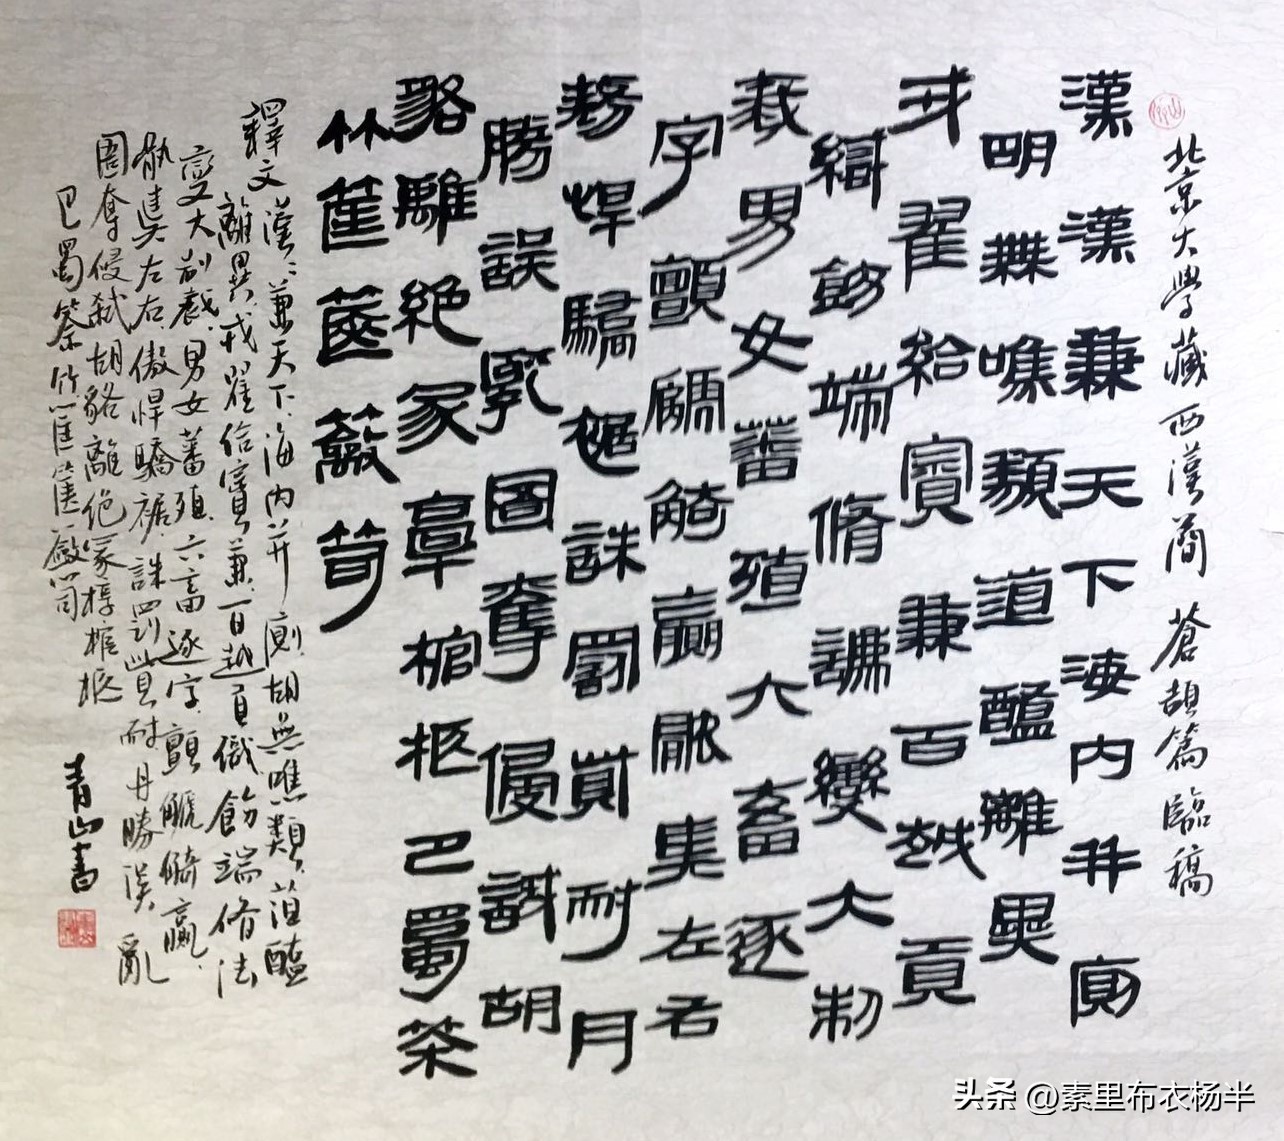 北京大學藏西漢簡蒼頡篇臨稿
漢漢兼天下海内并廁
明無噍類菹醢離異
戎翟給賨兼百越貢
織飭端脩灋變大制
裁男女蕃殖六畜逐
字顫觭贏左右
勢悍驕裾誅罰貲耐丹
勝誤亂圄奪侵試胡
貉離絶冢椁棺柩巴蜀筡
竹筐篋籢笥
釋文漢漢兼天下海内并廁胡無噍類菹醢
離異戎翟給賨兼百越貢織飭端脩法
變大制裁男女蕃殖六畜逐字顫觭贏
左右傲悍驕裾誅罰貲耐丹勝誤亂
圄奪侵試胡貉離絶冢椁棺柩
巴蜀筡竹筐篋籢笥
青山書
头条 @素里布衣杨半